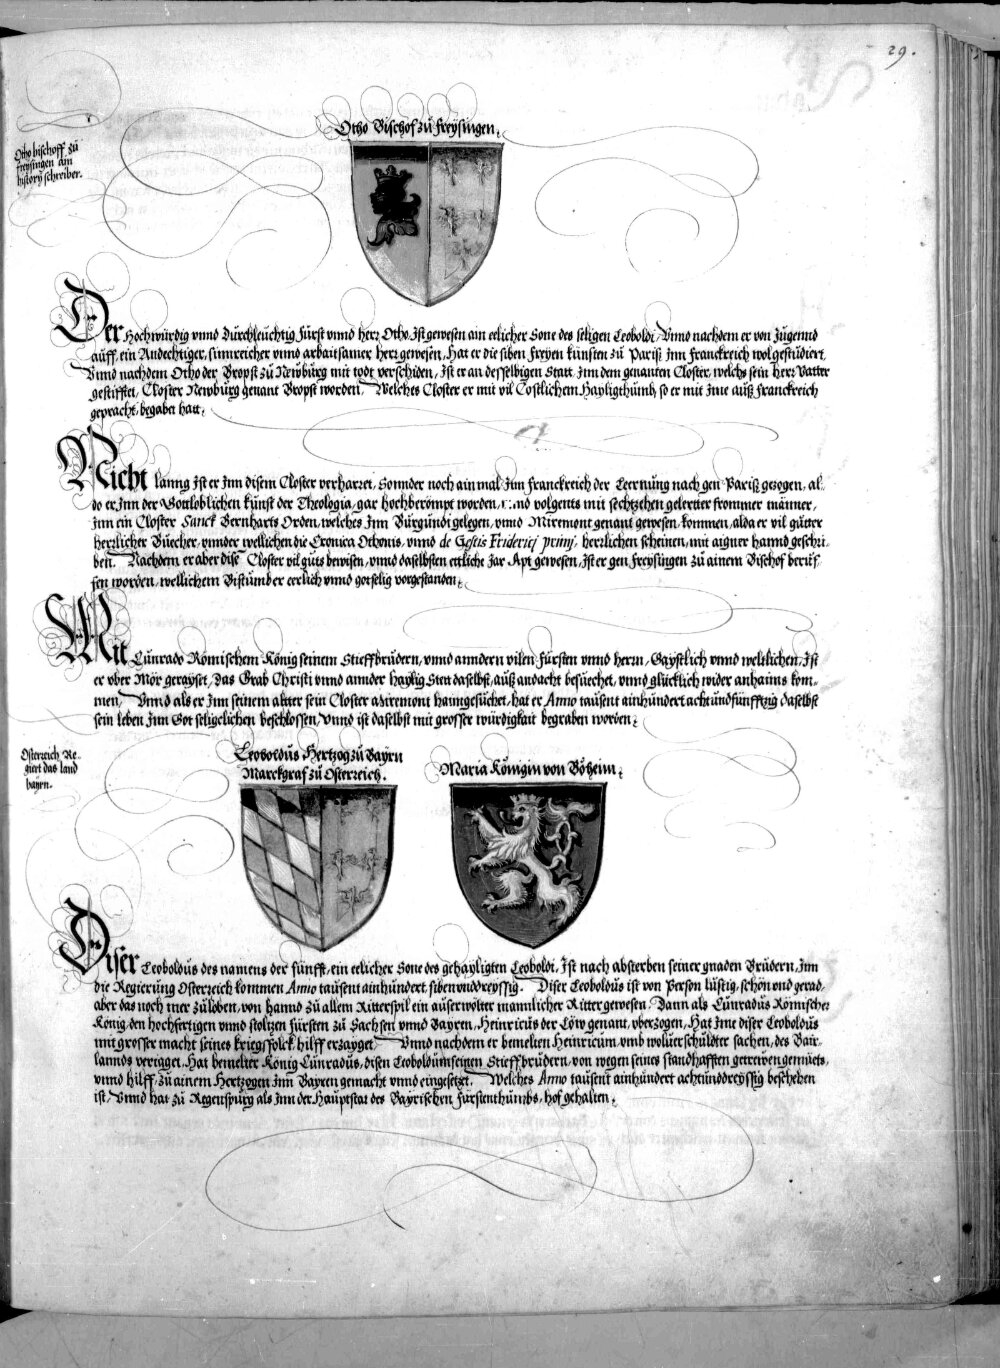 29.
Otho Bischof zů Freysingen.
Otho bischoff zů
freysingen ain
history schreiber.
Der Hochwürdig vnnd Dürchleüchtig Fürst vnnd herr Otho, Ist gewesen ain eelicher Sone des seligen Leoboldi, Vnnd nachdem er von Jugennd
auff, ein Andechtiger, sinnreicher vnnd arbaitsamer herr gewesen, Hat er die siben Freyen künsten zů Pariß Jnn Franckreich wol gestůdirt,
Vnnd nachdem Otho der Bropst zů Newbůrg mit todt verschiden, Ist er an desselbigen Statt Jnn dem genanten Closter, welchs sein herr Vatter
gestifftet, Closter Newbůrg genant Bropst worden, Welches Closter er mit vil Costlichem Hayligthůmb, so er mit Jme auß Franckreich
gepracht, begabet hatt.
Nicht lanng Ist er Jnn disem Closter verharret, Sonnder noch ain mal Jnn Franckreich der Leernůng nach gen Pariß gezogen, al-
do er Jnn der Gottloblichen kůnst der Theologia, gar hochberömpt worden, vnd volgents mit sechtzehen gelerter frommer männer,
Jnn ein Closter Sanct Bernharts Orden, welches Jnn Bůrgůndi gelegen, vnnd Miremont genant gewesen, kommen, alda er vil gůtter
herzlicher Büecher, vnnder wellichen die Cronica Othonis, vnnd de Gestis Friderici primi, herrlichen scheinen, mit aigner hannd geschri-
ben. Nachdem er aber diß Closter vil gůts bewisen, vnnd daselbsten ettliche Jar Apt gewesen, Ist er gen Freysingen zů ainem Bischof berůf-
fen worden, wellichem Bistůmb er eerlich vnnd gotselig vorgestanden.
Mit Cůnrado Römischem König seinem Stieffbrüdern, vnnd anndern vilen Fürsten vnnd herrn, Gaystlich vnnd weltlichen, Ist
er vber Mör gerayset, Das Grab Christi vnnd annder haylig Stett daselbst, auß andacht besüechet, vnnd glücklich wider anhaims kom-
men, Vnnd als er Jnn seinem altter sein Closter Miremont haimgesůchet, hat er Anno taůsent ainhůndert acht ůnd fůnfftzig daselbst
sein leben Jnn Got seligclichen beschlossen, Vnnd ist daselbst mit grosser würdigkait begraben worden.
Osterreich Re-
giert das land
bayrn.
Leoboldůs Hertzog zů Bayrn
Marckgraf zů Osterreich.
Maria Königin von Böheim.
Diser Leoboldůs des namens der fünfft, ein eelicher Sone des gehayligten Leoboldi, Ist nach absterben seiner gnaden Brüdern, Jnn
die Regierůng Osterreich kommen Anno taůsent ainhůndert, siben vnd dreyssig. Diser Leoboldůs ist von Person lůstig, schön vnd gerad,
aber das noch mer zůloben, von hannd zů allem Ritterspil ein aůserwölter mannlicher Ritter gewesen, Dann als Cůnradůs Römischer
König, den hochfertigen vnnd stoltzen Fürsten zů Sachsen vnnd Bayren, Heinricůs der Löw genant, vberzogen, Hat Jme diser Leoboldůs
mit grosser macht seines kriegsfolck hilff erzayget, Vnnd nachdem er bemelten Heinricům, vmb wolůerschůldter sachen, des Bair-
lands veriaget, Hat bemelter König Cůnradůs, disen Leoboldům seinen Stieffbrüdern, von wegen seines standhafften getrewen gemüets,
vnnd hilff, zů ainem Hertzogen Jnn Bayren gemacht vnnd eingesetzt. Welches Anno taůsent ainhůndert acht ůnd dreyssig beschehen
ist, Vnnd hat zů Regenspůrg als Jnn der Haůptstat des Bayrischen Fürstenthůmbs, hof gehalten.